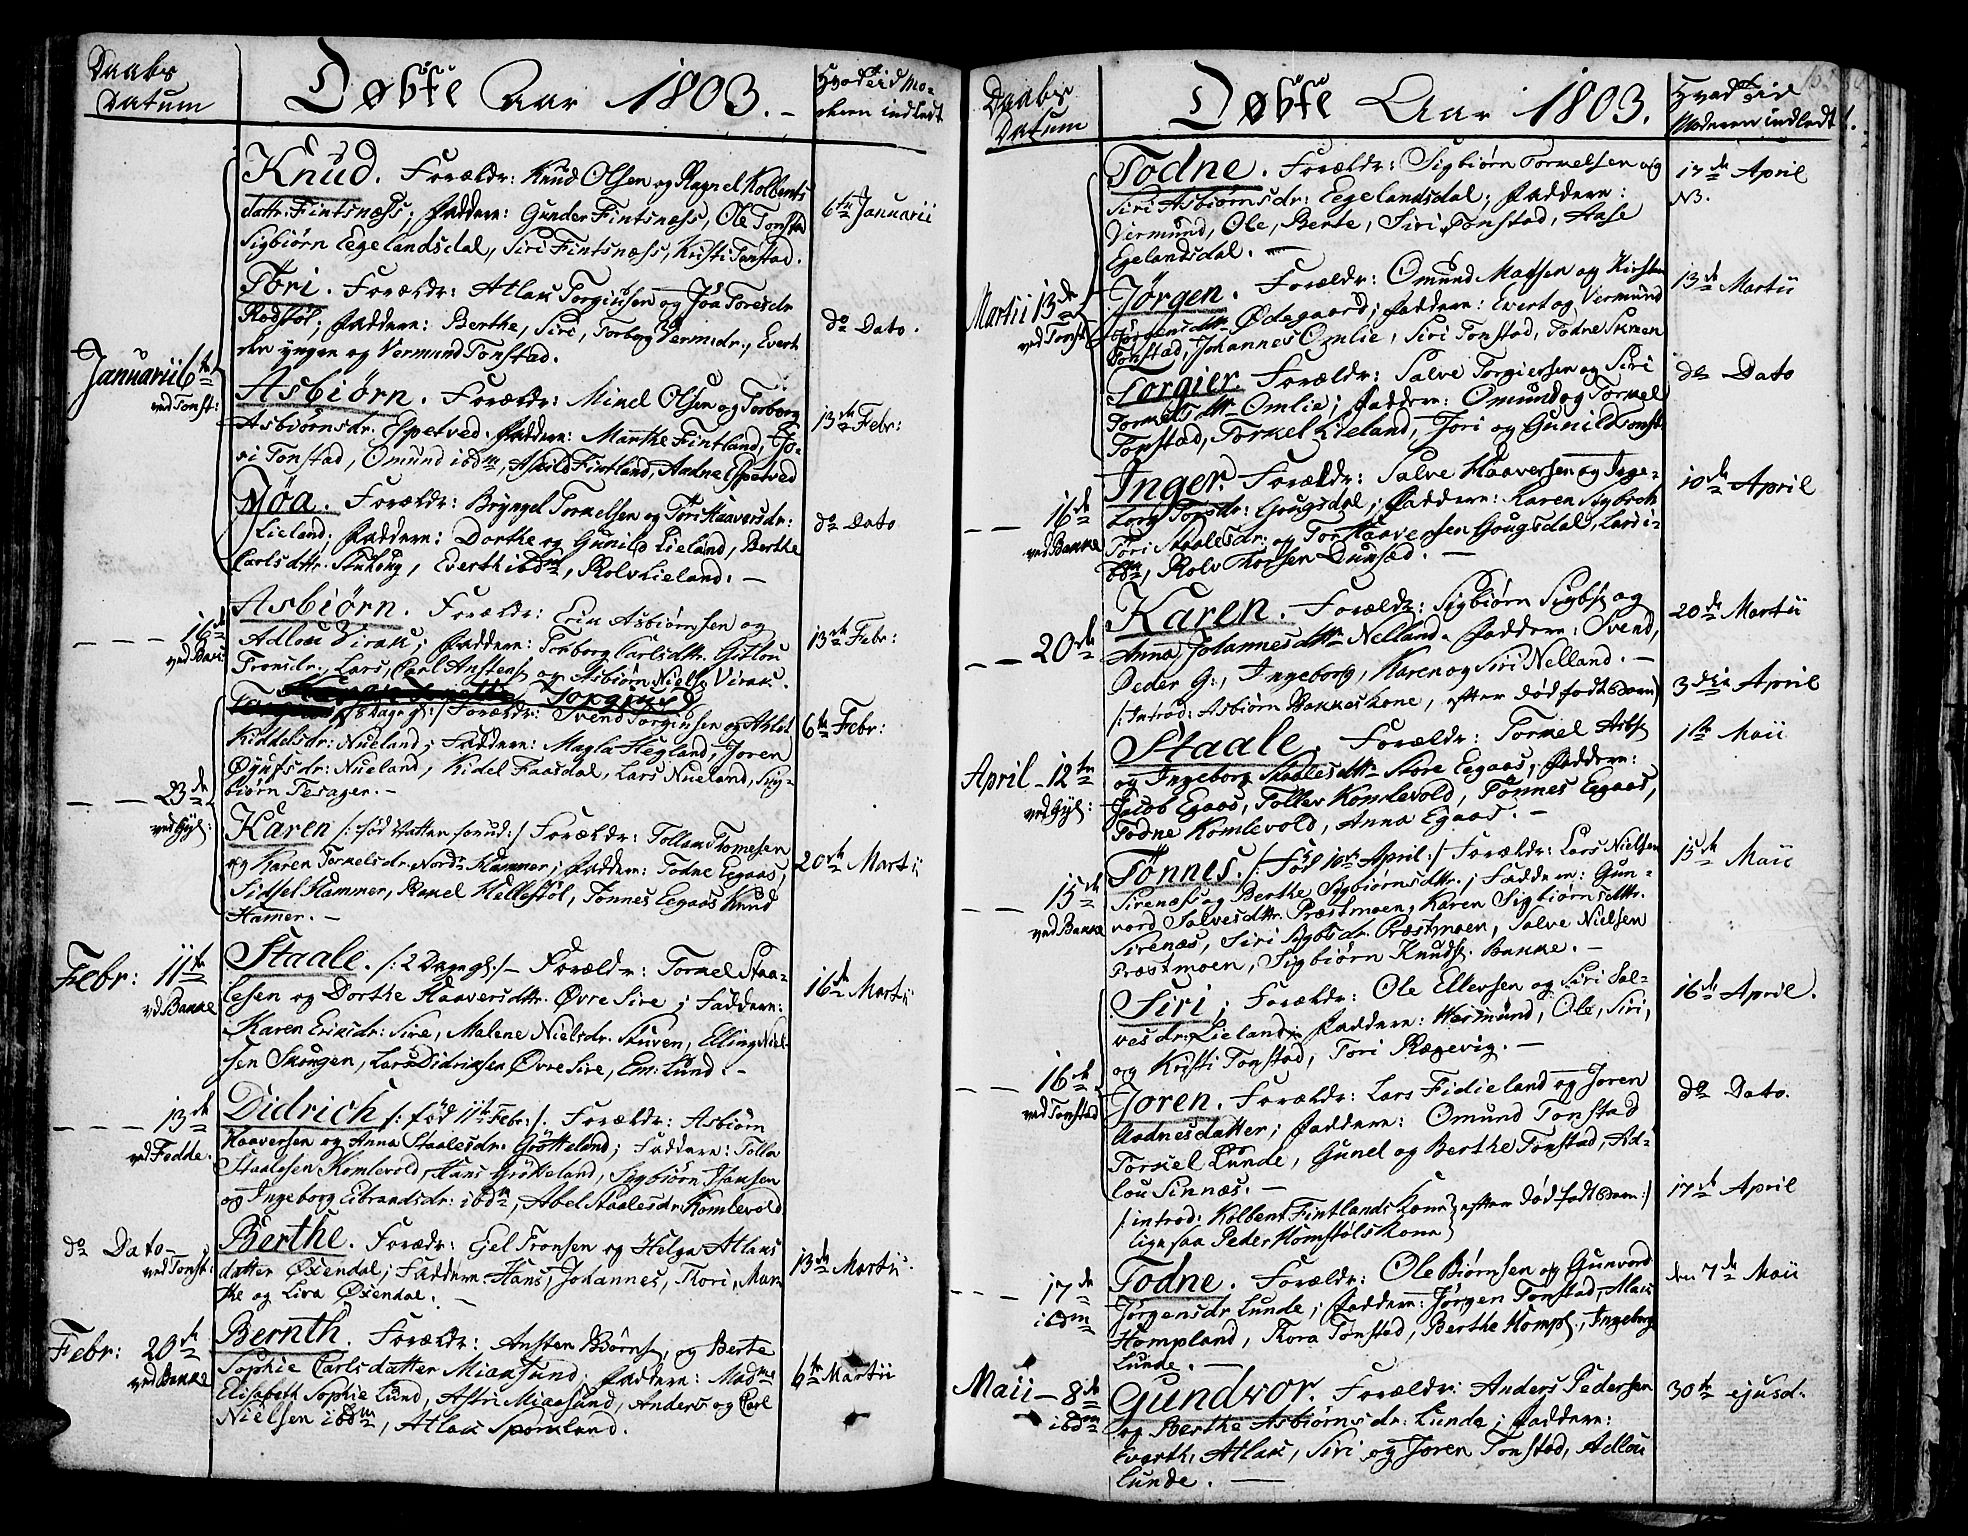 Daabs
Datum
Døbte Aar 1803.
Hvad tid Mo-
deren indledt
Knud. Forældr: Knud Olsen og Ragnel Kolbents
dattr: Fintsnæss; Faddere: Gunder Fintsnæss, Ole Tonstad
Sigbiørn Eegelandsdal, Siri Fintsnæss, Kristi Tonstad.
6te Januarii
Januarii 6te
ved Tonst:
Tøri. Forældr: Atlak Torgiusen og Jøa Toresdr
Rødstøl; Faddere: Berthe, Siri, Torborg Vermsdr., Evert
den yngre og Vermund Tonstad.
do Dato.
Asbiørn. Forældr: Mikel Olsen og Torborg
Asbiørnsdr. Espetved. Faddere: Marthe Fintland, Jo-
ri Tonstad, Omund ibdm, Askild Fintland, Aadne Espetved
13de Febr:
Jøa. Forældr: Bryngel Torkelsen og Tøri Haaversdr:
Lieland; Faddere: Dorthe og Gunild Lieland, Berthe
Carlsdttr. Stuhoug, Everth ibdm, Rolv Lieland. —
do Dato
16de
ved Bakke
Asbiørn. Forældr: Erik Asbiørnsen og
Adlou Virak; Faddere: Torborg Carlsdttr. Gitlou
Tronsdr., Lars, Carl Anstens. og Asbiørn Niels. Virak.
13de Febr:
Torgius
/: 8 Dage gl: / Forældr: Svend Torgiusen og Aslol
Kiddelsdr: Nueland; Faddere: Magla Hegland, Joren
Øyulfsdr: Nueland, Kidel Faasdal, Lars Nueland, Sig-
biørn Pesager. —
6te Febr:
23de
ved Gyl:
Karen /: fød Natten forud :/ Forældr: Tollak Tomesen
og Karen Torkelsdr. Nordr Hammer; Faddere: Todne Eegaas,
Sidsel Hammer, Rakel Hellestøl, Tønnes Eegaas Knud
Hamer. —
20de Martii
Febr: 11te
vd Bakke
Staale. /: 2 Dage gl: / — Forældr: Torkel Staa-
lesen og Dorthe Haaversdttr. Øvre Sire; Faddere:
Karen Eriksdr: Sire, Malene Nielsdr. Stuven, Elling Niel-
sen Skougen, Lars Didriksen Øvre Sire, Em: Lund. —
16de Martii
13de
ved Fedde.
Didrich /: fød 11te Febr: /. Forældr: Asbiørn
Haaversen og Anna Staalesdr: Gøtteland; Faddere: Tolla
Staalesen Komlevold, Hans Gyttieland, Sigbiørn Hansen
og Ingeborg Eibrandsdr: ibdm, Abel Staalesdr. Komlevold
do Dato —
ved Tonst:
Berthe. Forædr: Gel Tronsen og Helga Atlaks
datter Øxendal; Faddere: Hans, Johannes, Tori, Mar-
the og Liva Øxendal. —
13de Martii
Febr: 20de
ved Bakke
Bernth. Forældr: Ansten Biørns. og Berte
Sophie Carlsdatter Miaasund; Faddere: Madme
Elisabeth Sophie Lund, Astri Miaasund, Anders og Carl
Nielsen ibdm, Atlak Spokland.
6te Martii
Daabs
Datum
Døbte Aar 1803.
Hvad Tid
Moderen indledt
Todne. Forældr: Sigbiørn Torkelsen og
Siri Asbiørnsdr: Eegelandsdal; Faddere:
Vermund, Ole, Berte, Siri Tonstad, Aase
Egelandsdal. —
17de April
NB.
Martii 13de
ved Tonst:
Jørgen. Forældr: Omund Madsen og Kirsten
Jørgensdttr Ødegaard; Faddere: Evert og Vermund
Tonstad, Johannes Omlie, Siri Tonstad, Todne Sireen
13de Martii
Torgier. Forældr: Salve Torgiersen og Siri
Tormodsdttr Omlie; Faddere: Omund og Torkel
Tonstad, Torkel Lieland, Jori og Gunild Tonst:
do Dato
16de
ved Bakke
Inger. Forældr: Salve Haaversen og Inge-
borg Torsdr: Gougsdal; Faddere: Karen Sigbroh
Tøri Staalesdr: og Tor Haaversen Gougsdal, Lars i-
bdm, Rolv Thorsen Dunsad. —
10de April
20de
Karen. Forældr: Sigbiørn Sigbs. og
Anna Johannesdttr Nelland. Faddere: Svend,
Peder G:, Ingeborg, Karen og Siri Nelland. —
20de Martii
/: Introd: Asbiørn Bakkes kone, efter dødfødt Barn)
3die April
April — 12te
ved Gyl:
Staale. Forældr: Torkel Asls.
og Ingeborg Staalesdttr Store Eegaas; Faddere:
Jacob Egaas, Tollev Komlevold, Tønnes Eegaas,
Todne Komlevold, Anna Egaas. —
1ste Maii
15de
ved Bakke
Tønnes. /: Fød 10de April: / Forældr: Lars Nielsen
Sirenæs og Berthe Sigbiørnsdttr.; Faddere: Gun-
vord Salvesdttr. Præstmoen, Karen Sigbiørnsdttr.
Sirenæs, Siri Sigbsdr. Præstmoen, Salve Nielsen
Præstmoen, Sigbiørn Knuds. Bakke. —
15de Maii
16de
ved Tonstad
Siri; Forældr: Ole Ellevsen og Siri Sal-
vesdr: Lieland; Faddere: Wermund, Ole, Siri,
og Kristi Tonstad, Tori Rægevig. —
16de April.
Joren. Forældr: Lars Fidieland og Joren
Aadnesdatter; Faddere: Omund Tonstad
Torkel Lunde, Gunel og Berthe Tonstad, Ad-
lou Sinnæs. —
do Dato.
/: introd: Kolbent Fintlands Kone } efter dødfødt Barn:/
ligesaa Peder Homstøls Kone
17de April
17de
ibdm
Todne. Forældr: Ole Biørnsen og Gunvord
Jørgensdr Lunde; Faddere: Jørgen Tonstad, Mak
Hompland, Tora Tonstad, Berthe Kompl., Ingeborg
Lunde. —
den 7de Maii
Maii — 8de
ibdm
Gundvor. Forældr: Anders Pedersen
og Berthe Asbiørnsdr: Lunde; Faddere:
Everth, Atlak, Siri og Joren Tonstad, Adlou
Lunde. —
30te ejusd.